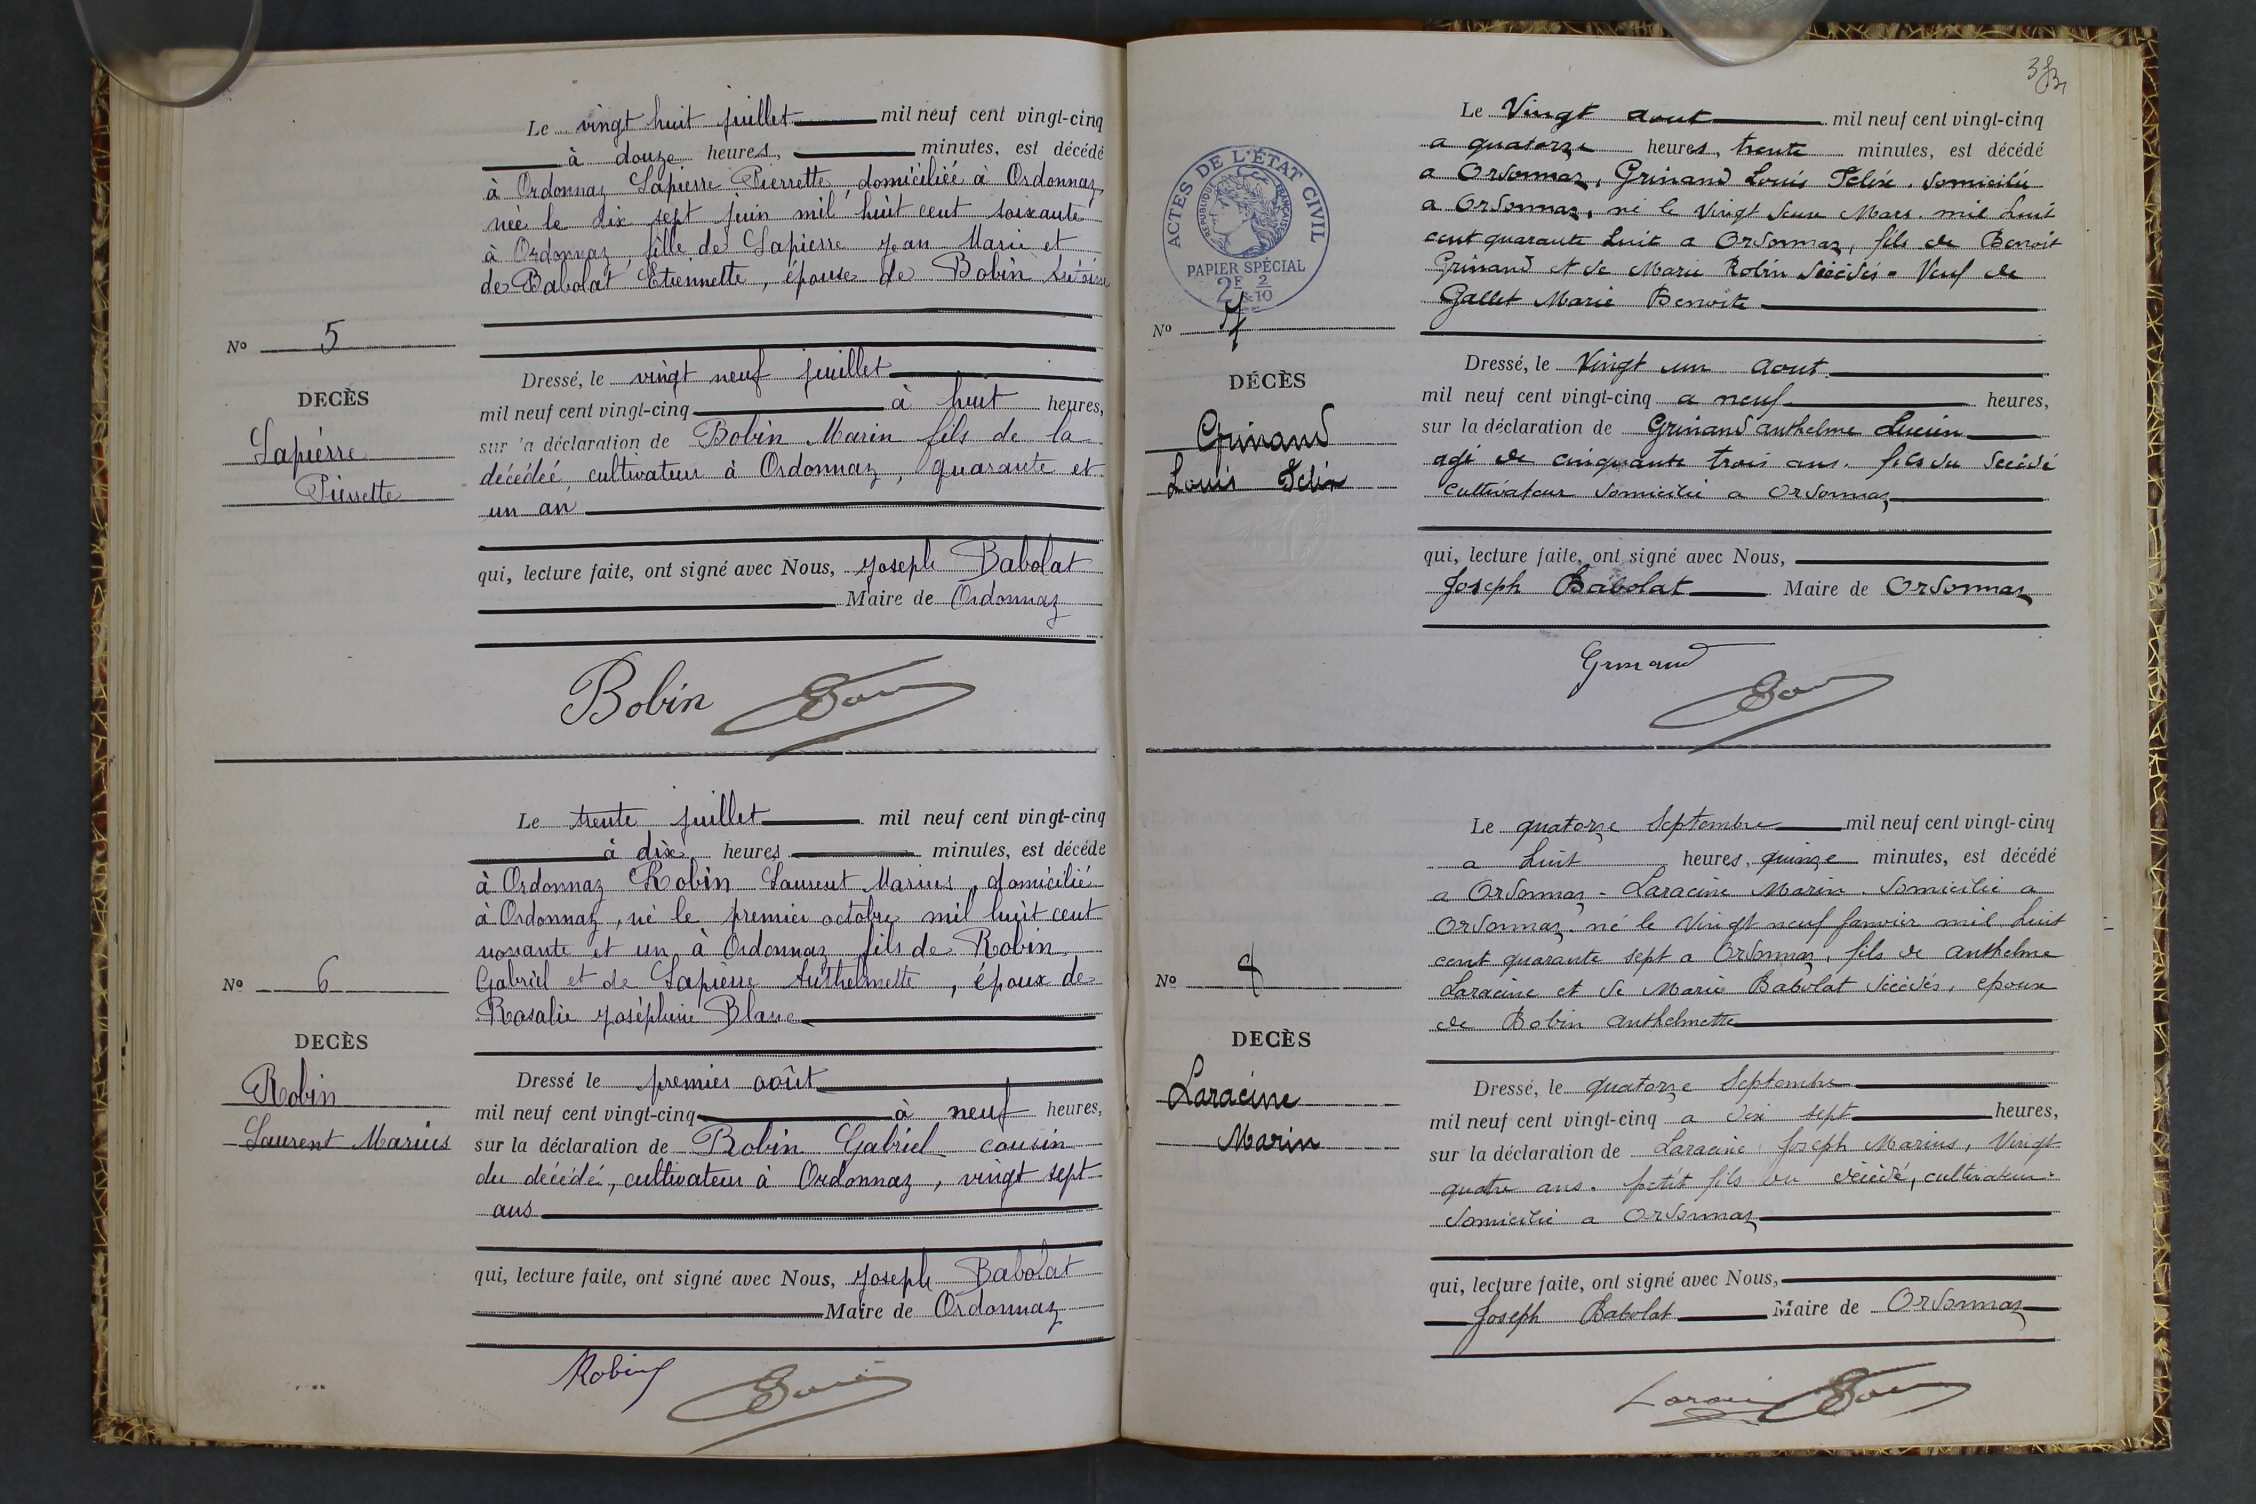 Le vingt huit juillet mil neuf cent vingt-cinq
à douze heures, minutes, est décédé
à Ordonnaz Lapierre Pierrette, domiciliée à Ordonnaz,
née le dix sept juin mil huit cent soixante
à Ordonnaz fille de Lapierre Jean Marie et
de Babolat Etiennette, épouse de Bobin
No 5
DECÈS
Lapierre
Pierrette
Dressé, le vingt neuf juillet
mil neuf cent vingt-cinq à huit heures,
sur la déclaration de Bobin Marin fils de la
décédée, cultivateur à Ordonnaz, quarante et
un an
qui, lecture faite, ont signé avec Nous, Joseph Babolat
Maire de Ordonnaz
Bobin
Le trente juillet mil neuf cent vingt-cinq
à dix heures minutes, est décédé
à Ordonnaz Robin Laurent Marius, domicilié
à Ordonnaz, né le premier octobre mil huit cent
nonante et un à Ordonnaz fils de Robin
Gabriel et de Lapierre Anthelmette, époux de
Rosalie Joséphine Blanc
No 6
DECÈS
Robin
Laurent Marius
Dressé le premier août
mil neuf cent vingt-cinq à neuf heures,
sur la déclaration de Robin Gabriel cousin
du décédé, cultivateur à Ordonnaz, vingt sept
ans
qui, lecture faite, ont signé avec Nous, Joseph Babolat
Maire de Ordonnaz
Robin
ACTES DE L'ÉTAT CIVIL
RÉPUBLIQUE FRANÇAISE
PAPIER SPÉCIAL
2F 2
&10
Le Vingt aout mil neuf cent vingt-cinq
a quatorze heures, trente minutes, est décédé
a Ordonnaz, Grinand Louis Felix. domicilié
a Ordonnaz, né le Vingt deux Mars. mil huit
cent quarante huit a Ordonnaz, fils de Benoit
Grinand et de Marie Robin décédés - Veuf de
Gallet Marie Benoite
No 7
DÉCÈS
Grinand
Louis Felix
Dressé, le Vingt un aout
mil neuf cent vingt-cinq a neuf heures,
sur la déclaration de Grinand anthelme Lucien
agé de cinquante trois ans. fils du décédé
cultivateur domicilié a Ordonnaz
qui, lecture faite, ont signé avec Nous,
Joseph Babolat Maire de Ordonnaz
Grinand
Le quatorze Septembre mil neuf cent vingt-cinq
a huit heures, quinze minutes, est décédé
a Ordonnaz - Laracine Marin. domicilié a
Ordonnaz. né le Vingt neuf Janvier mil huit
cent quarante sept a Ordonnaz, fils de anthelme
Laracine et de Marie Babolat décédés, epoux
de Bobin anthelmette
No 8
DECÈS
Laracine
Marin
Dressé, le quatorze Septembre
mil neuf cent vingt-cinq a dix sept heures,
sur la déclaration de Laracine Joseph Marius, Vingt
quatre ans. petit fils du décédé, cultivateur
domicilié a Ordonnaz
qui, lecture faite, ont signé avec Nous,
Joseph Babolat Maire de Ordonnaz